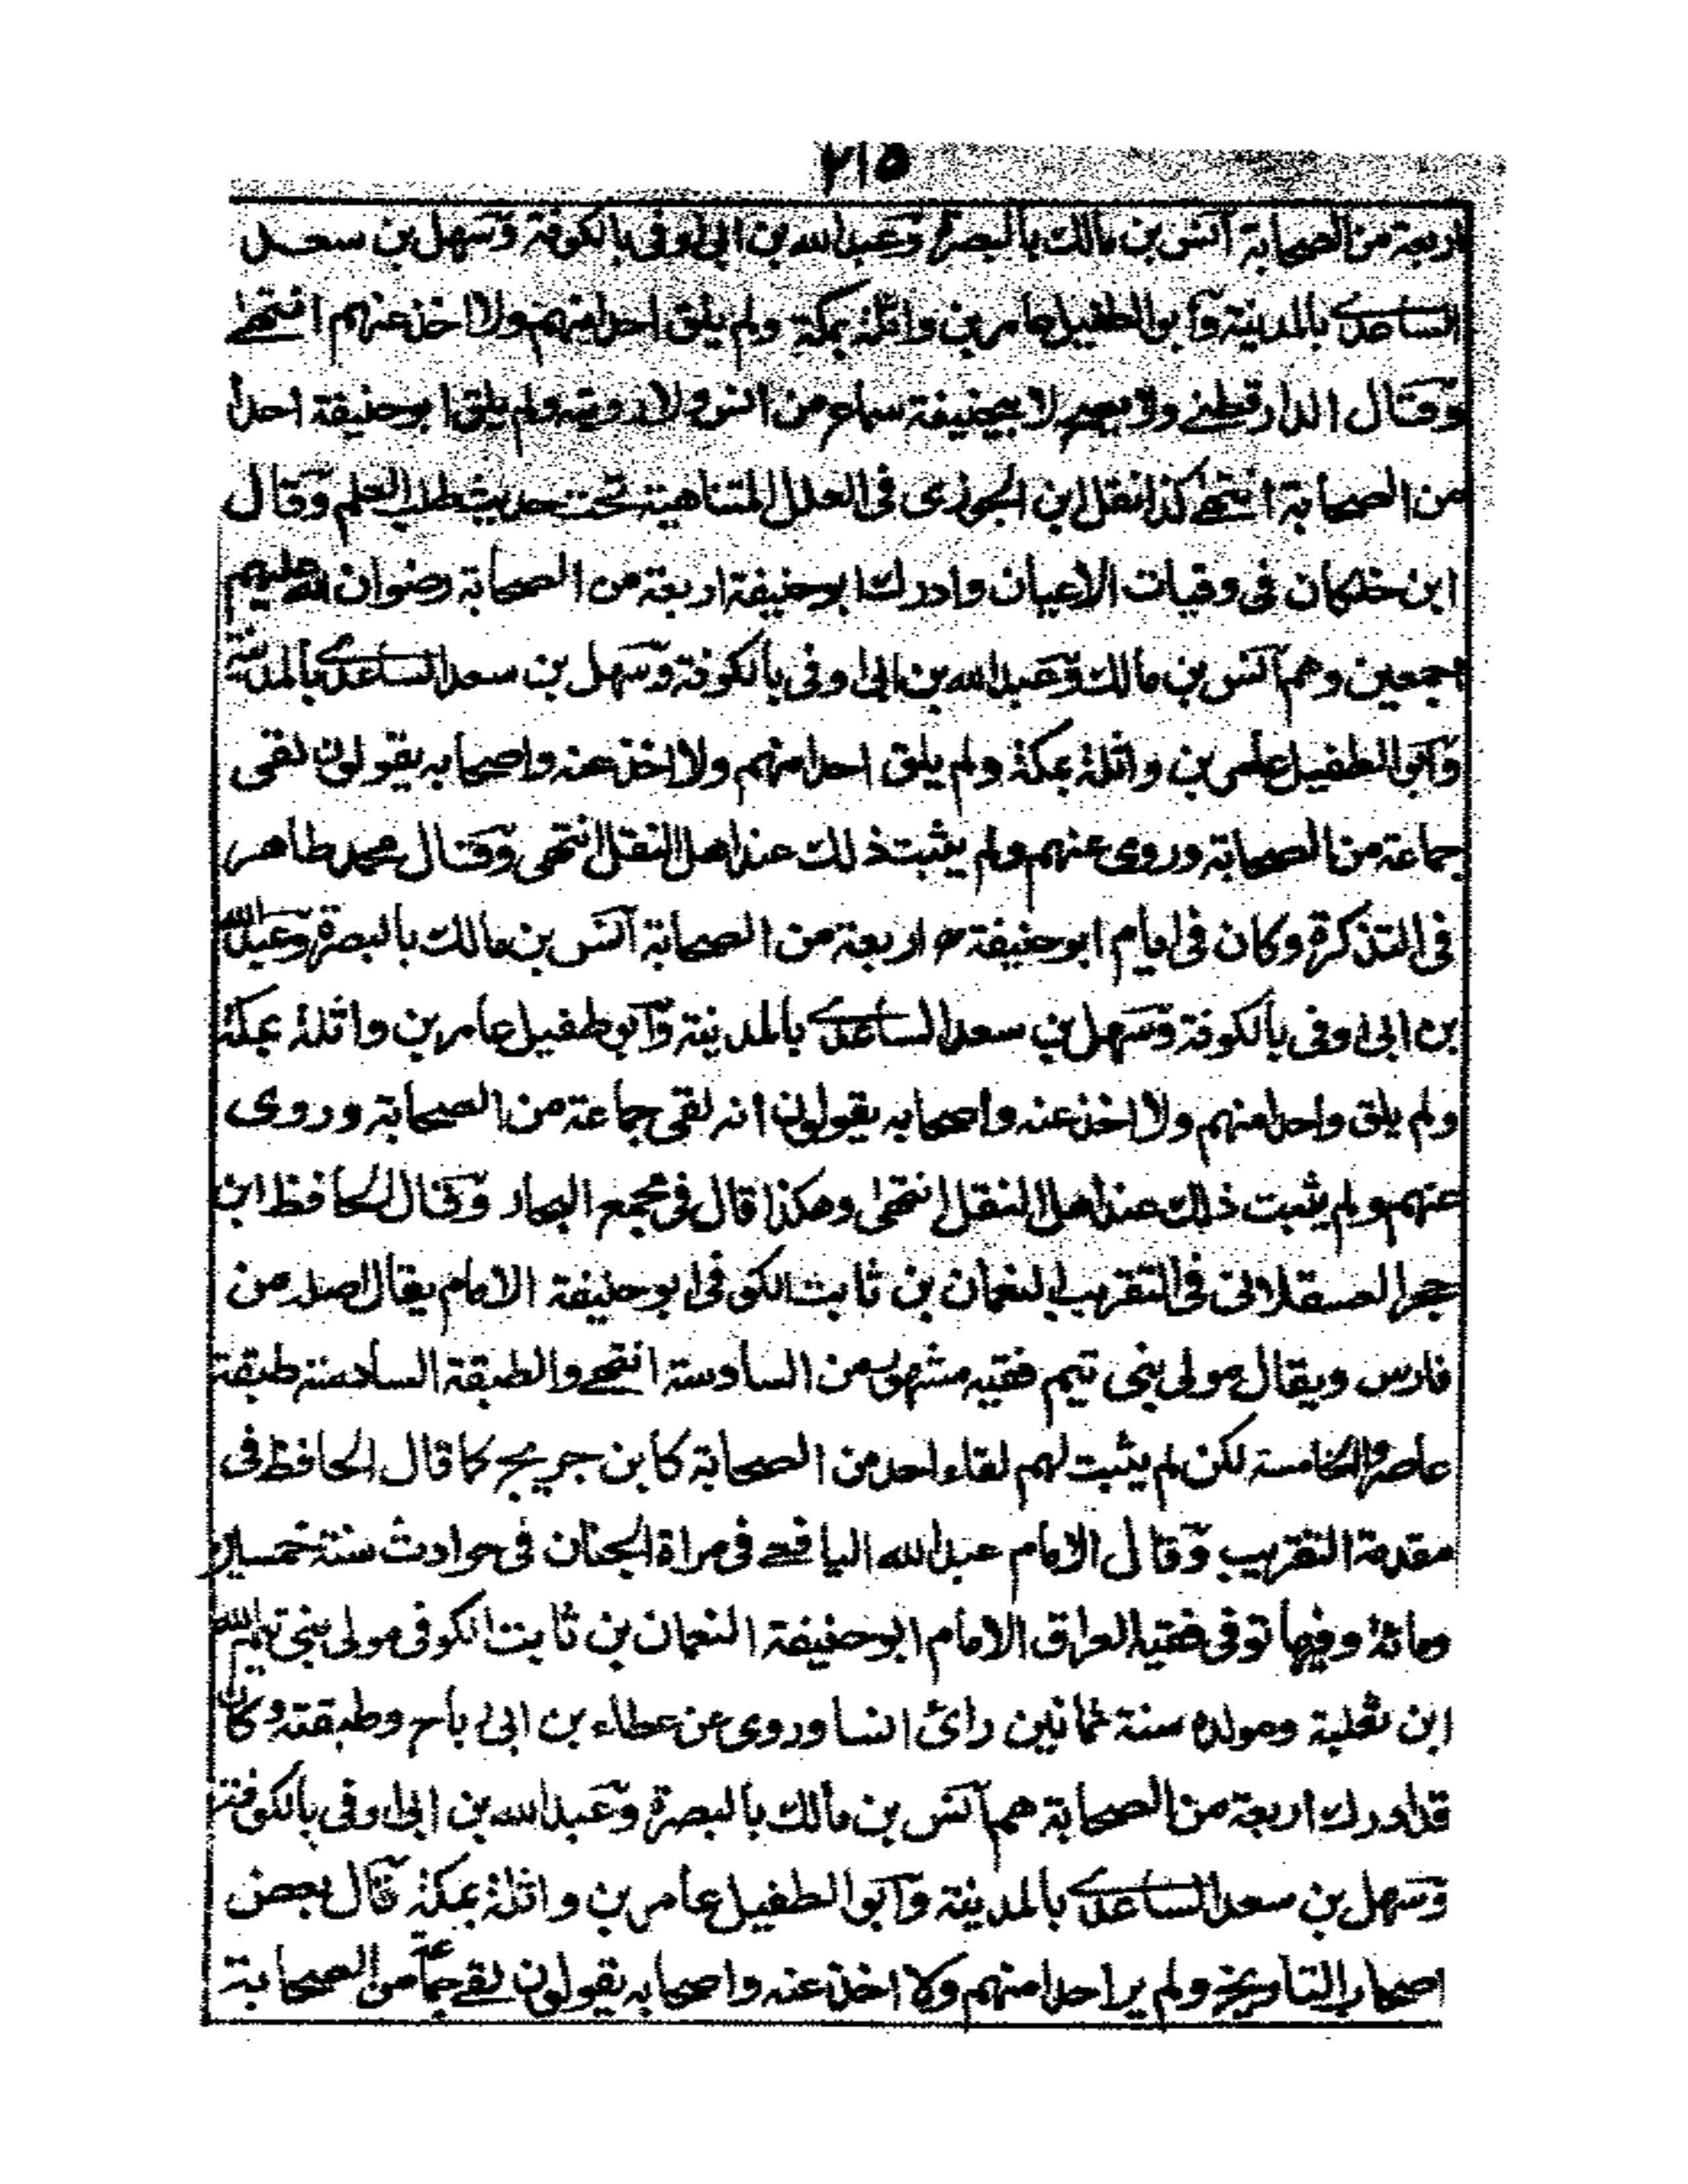 ٢١٥
اربعة من الصحابة انس بن مالك بالبصرة وعبد الله بن ابى اوفى بالكوفة وسهل بن سعد
الساعدى بالمدينة وابو الطفيل عامر بن واثلة بمكة ولم يلق احدا منهم ولا اخذ عنهم انتهى
وقال الدارقطنى ولا يصح لابيحنيفة سماع من انس ولا رويته ولم يلق ابو حنيفة احدا
من الصحابة انتهى كذا نقل ابن الجوزى فى العلل المتناهية تحت حديث طلب العلم وقال
ابن خلكان فى وفيات الاعيان وادرك ابو حنيفة اربعة من الصحابة رضوان الله عليهم
اجمعين وهم انس بن مالك وعبد الله بن ابى اوفى بالكوفة وسهل بن سعد الساعدى بالمدينة
وابو الطفيل عامر بن واثلة بمكة ولم يلق احدا منهم ولا اخذ عنه واصحابه يقولون لقى
جماعة من الصحابة وروى عنهم ولم يثبت ذلك عند اهل النقل انتهى وقال محمد طاهر
فى التذكرة وكان فى ايام ابو حنيفة رح اربعة من الصحابة انس بن مالك بالبصرة وعبد الله
بن ابى اوفى بالكوفة وسهل بن سعد الساعدى بالمدينة وابو طفيل عامر بن واثلة بمكة
ولم يلق واحدا منهم ولا اخذ عنه واصحابه يقولون انه لقى جماعة من الصحابة وروى
عنهم ولم يثبت ذلك عند اهل النقل انتهى وهكذا قال فى مجمع البحار وقال الحافظ ابن
حجر العسقلانى فى التقريب النعمان بن ثابت الكوفى ابو حنيفة الامام يقال اصله من
فارس ويقال مولى بنى تيم فقيه مشهور من السادسة انتهى والطبقة السادسة طبقة
عاصروا الخامسة لكن لم يثبت لهم لقاء احد من الصحابة كابن جريج كما قال الحافظ فى
مقدمة التقريب وقال الامام عبد الله اليافعى فى مراة الجنان فى حوادث سنة خمسين
ومائة وفيها توفى فقيه العراق الامام ابو حنيفة النعمان بن ثابت الكوفى مولى بنى تيم الله
ابن ثعلبة ومولده سنة ثمانين رائ انسا وروى عن عطاء بن ابى باح وطبقته وكان
قد ادرك اربعة من الصحابة هم انس بن مالك بالبصرة وعبد الله بن ابى اوفى بالكوفة
وسهل بن سعد الساعدى بالمدينة وابو الطفيل عامر بن واثلة بمكة قال بعض
اصحاب التاريخ ولم ير احدا منهم ولا اخذ عنه واصحابه يقولون لقى جماعة من الصحابة